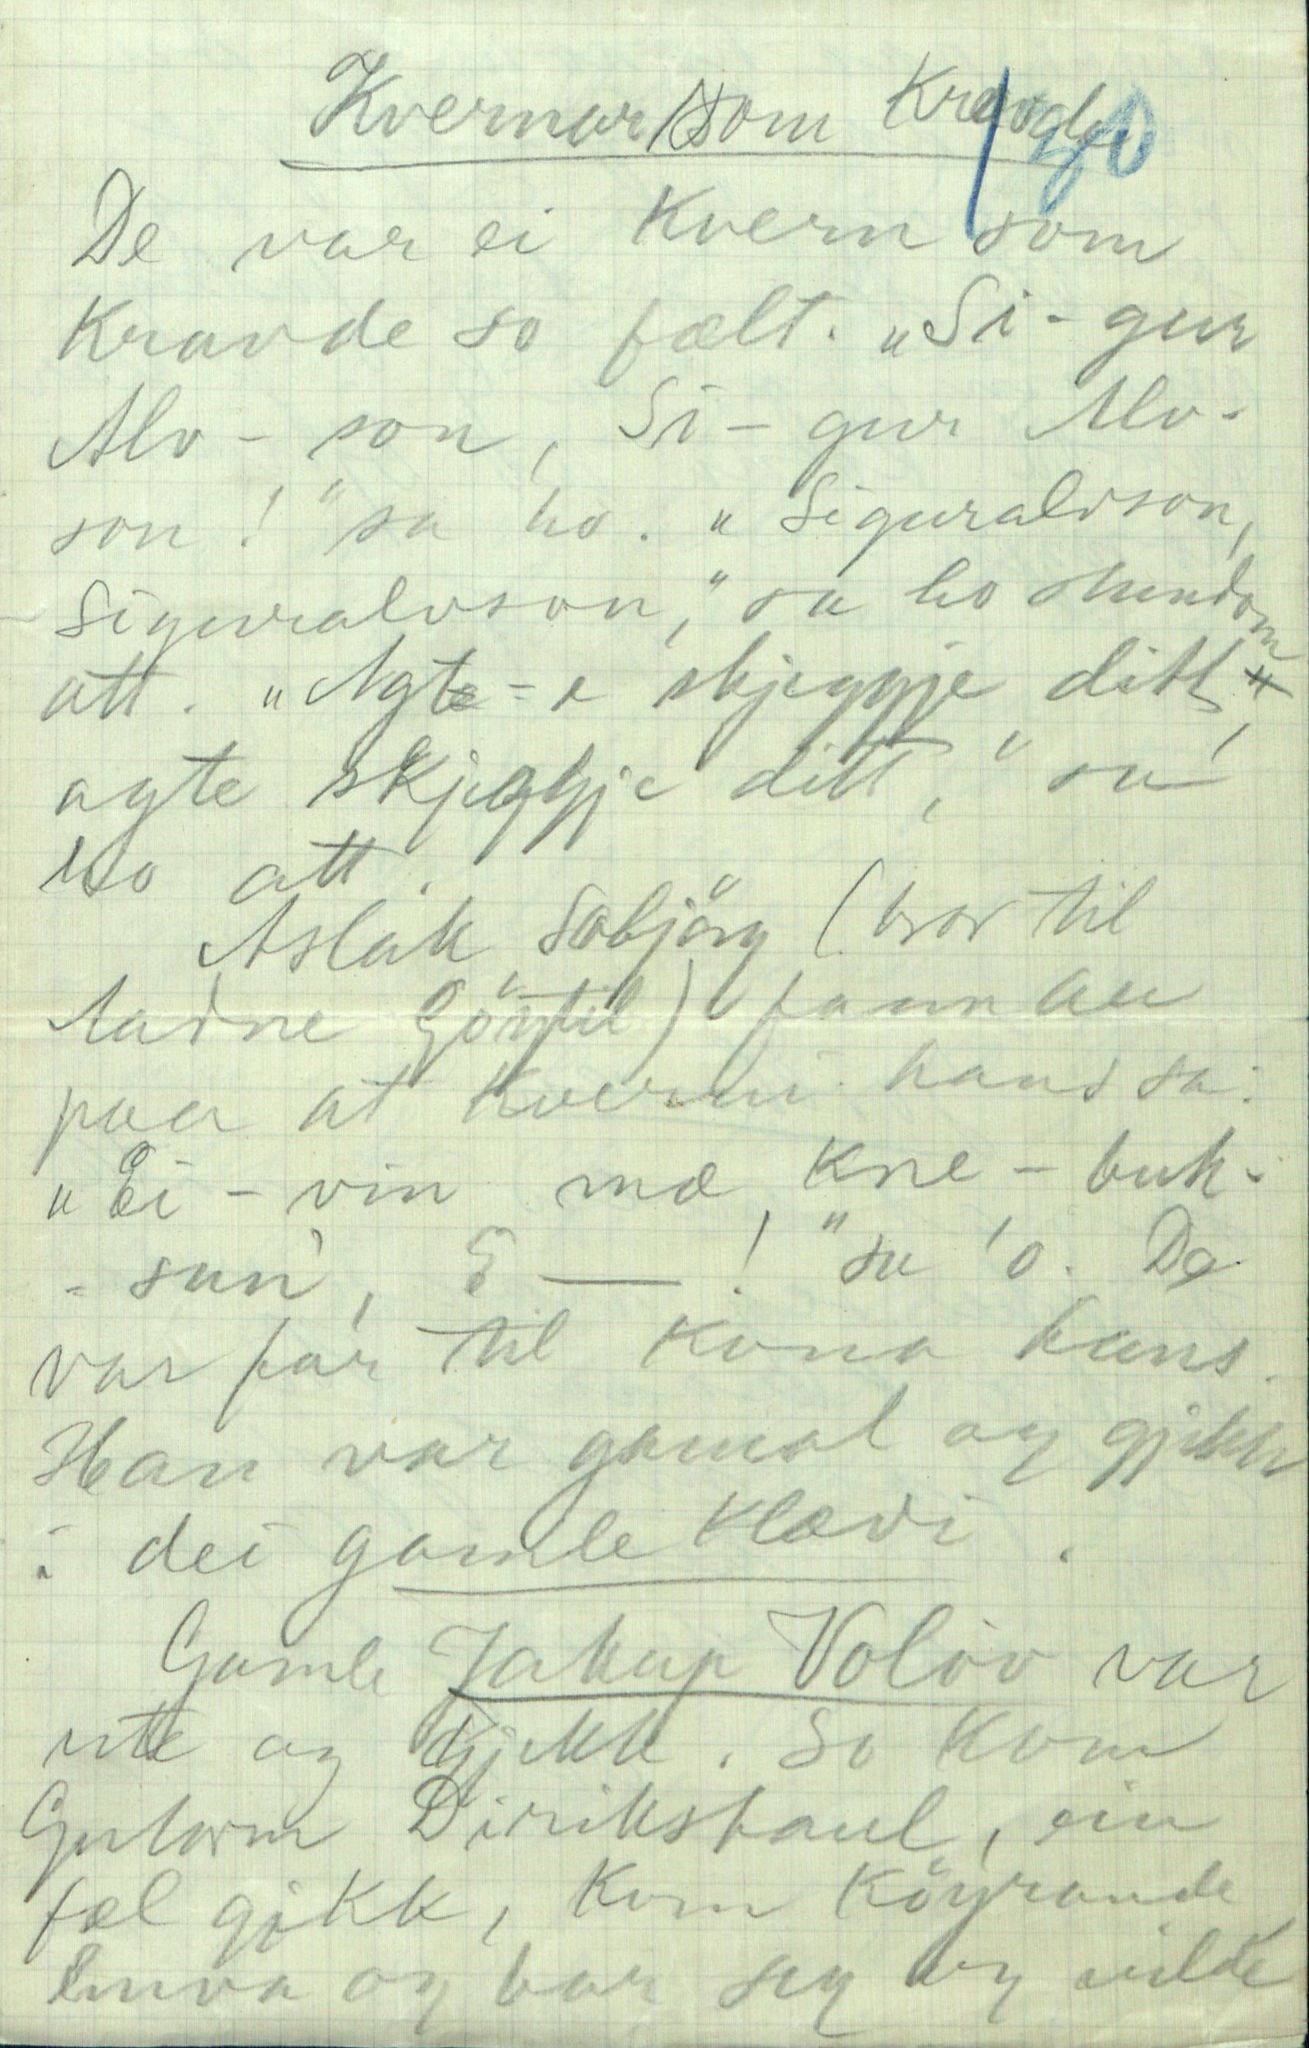 Kvernar som Kravde
180
De var ei Kvern som
Kravde so fælt. „Si-gur
Alv-son, Si-gur Alv-
son!" sa ho. „Siguralvson,
Siguralvson," sa ho stundom
att. „Agte-e skjeggje ditt,
agte skjeggje ditt," sa
ho att.
Aslak Sobjörg (bror til
Aadne ) fann au
paa at Kverni hans sa:
„Ei-vin mæ Kne-buk-
-sun', E——!" sa 'o. De
var far til Kona hans.
Han var gamal og gjekk
i dei gamle Klædi.
Gamle Jakup Voløv var
ute og gjekk. So Kom
Gutorm Dirikshaul, ein
fæl gjikk, Kom Köyrande
og bar seg og vilde